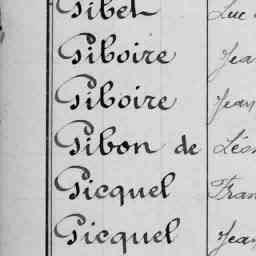 Gibel Luc
Giboire Jea
Giboire Jean
Gibon de Léo
Gicquel Fran
Gicquel Jean